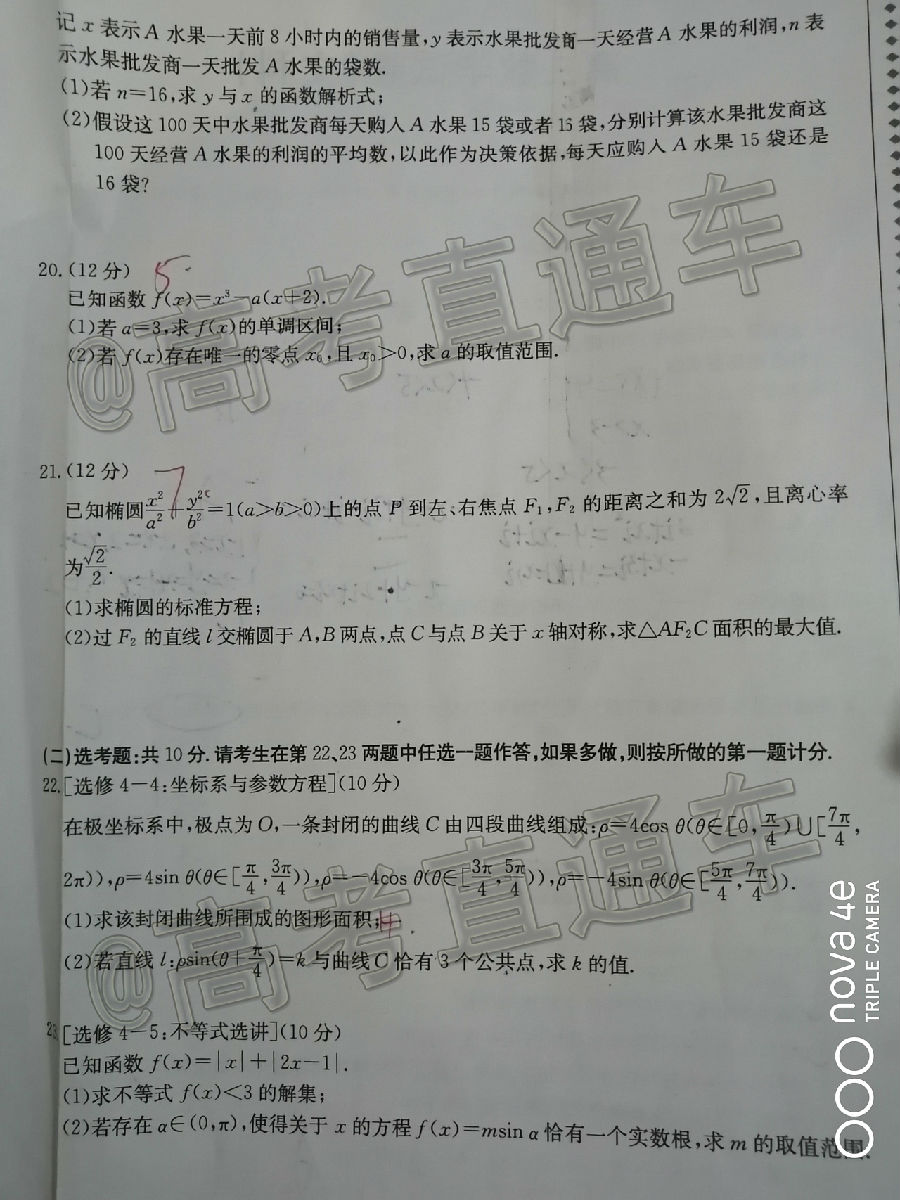 记 x 表示 A 水果一天前 8 小时内的销售量,y 表示水果批发商一天经营 A 水果的利润,n 表
示水果批发商一天批发 A 水果的袋数.
(1)若 n=16,求 y 与 x 的函数解析式;
(2)假设这 100 天中水果批发商每天购入 A 水果 15 袋或者 16 袋,分别计算该水果批发商这
100 天经营 A 水果的利润的平均数,以此作为决策依据,每天应购入 A 水果 15 袋还是
16 袋?
20.(12 分)
5
已知函数 f(x)=x³-a(x+2).
(1)若 a=3,求 f(x)的单调区间;
(2)若 f(x)存在唯一的零点 x₀,且 x₀>0,求 a 的取值范围.
@高考直通车
21.(12 分)
7
已知椭圆x²/a²+y²/b²=1(a>b>0)上的点 P 到左、右焦点 F₁,F₂ 的距离之和为 2√2,且离心率
为√2/2.
(1)求椭圆的标准方程;
(2)过 F₂ 的直线 l 交椭圆于 A,B 两点,点 C 与点 B 关于 x 轴对称,求△AF₂C 面积的最大值.
(二)选考题:共 10 分.请考生在第 22、23 两题中任选一题作答,如果多做,则按所做的第一题计分.
22.[选修 4-4:坐标系与参数方程](10 分)
在极坐标系中,极点为 O,一条封闭的曲线 C 由四段曲线组成:ρ=4cos θ(θ∈[0,π/4)∪[7π/4,
2π)),ρ=4sin θ(θ∈[π/4,3π/4)),ρ=-4cos θ(θ∈[3π/4,5π/4)),ρ=-4sin θ(θ∈[5π/4,7π/4)).
(1)求该封闭曲线所围成的图形面积;
(2)若直线 l:ρsin(θ+π/4)=k 与曲线 C 恰有 3 个公共点,求 k 的值.
@高考直通车
23.[选修 4-5:不等式选讲](10 分)
已知函数 f(x)=|x|+|2x-1|.
(1)求不等式 f(x)<3 的解集;
(2)若存在 α∈(0,π),使得关于 x 的方程 f(x)=msin α 恰有一个实数根,求 m 的取值范围.
nova 4e
TRIPLE CAMERA